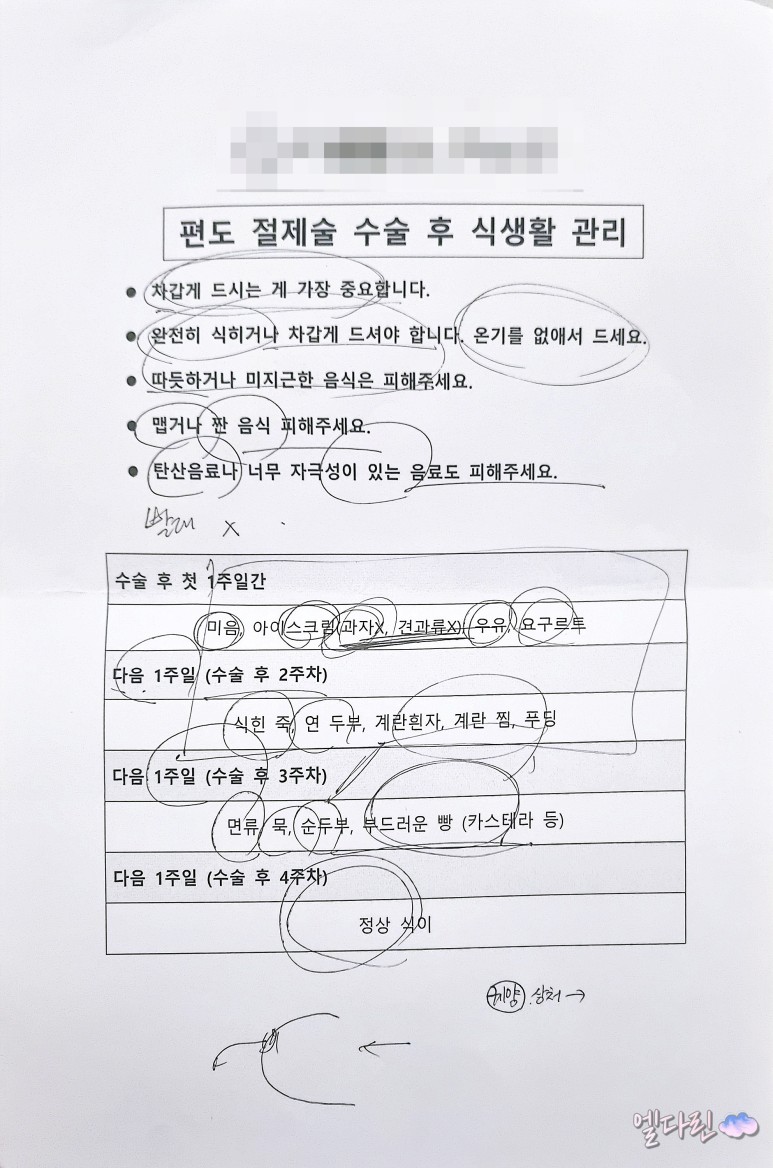 편도 절제술 수술 후 식생활 관리
● 차갑게 드시는 게 가장 중요합니다.
● 완전히 식히거나 차갑게 드셔야 합니다. 온기를 없애서 드세요.
● 따듯하거나 미지근한 음식은 피해주세요.
● 맵거나 짠 음식 피해주세요.
● 탄산음료나 너무 자극성이 있는 음료도 피해주세요.
빨대 X
수술 후 첫 1주일간
미음, 아이스크림(과자X, 견과류X), 우유, 요구르트
다음 1주일 (수술 후 2주차)
식힌 죽, 연 두부, 계란흰자, 계란 찜, 푸딩
다음 1주일 (수술 후 3주차)
면류, 묵, 순두부, 부드러운 빵 (카스테라 등)
다음 1주일 (수술 후 4주차)
정상 식이
궤양 상처 →
엘다린